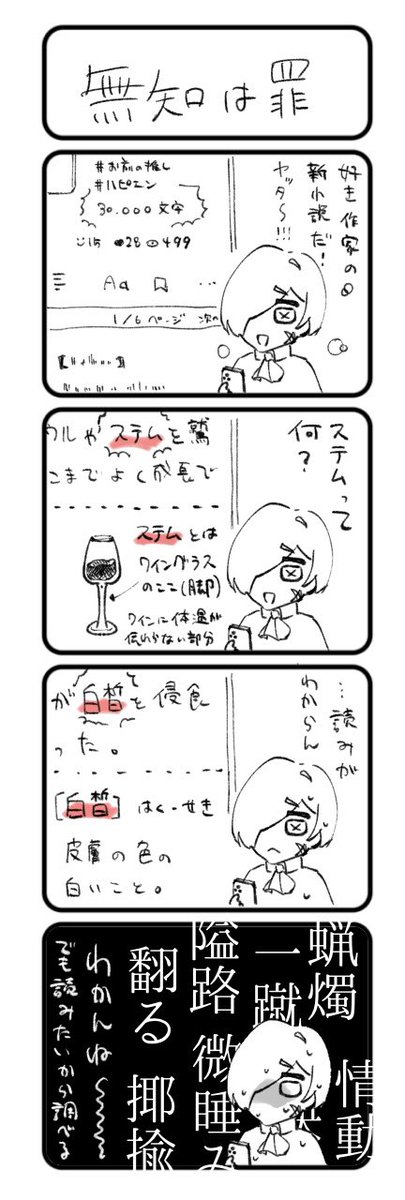 無知は罪
好き作家の
新小説だ!
ヤッタ〜!!!
#お前の推し
#ハピエン
30.000文字
15 28 499
Aa
1/6ページ 次の
ステムって
何?
ウルや ステムを驚
こまでよく成長で
ステムとは
ワイングラス
のここ(脚)
ワインに体温が
伝わらない部分
…読みが
わからん
が白皙を侵食
った。
[白皙] はく-せき
皮膚の色の
白いこと。
蝋燭
情動
一蹴
隘路 微睡み
翻る 揶揄
わかんね〜〜〜
でも読みたいから調べる